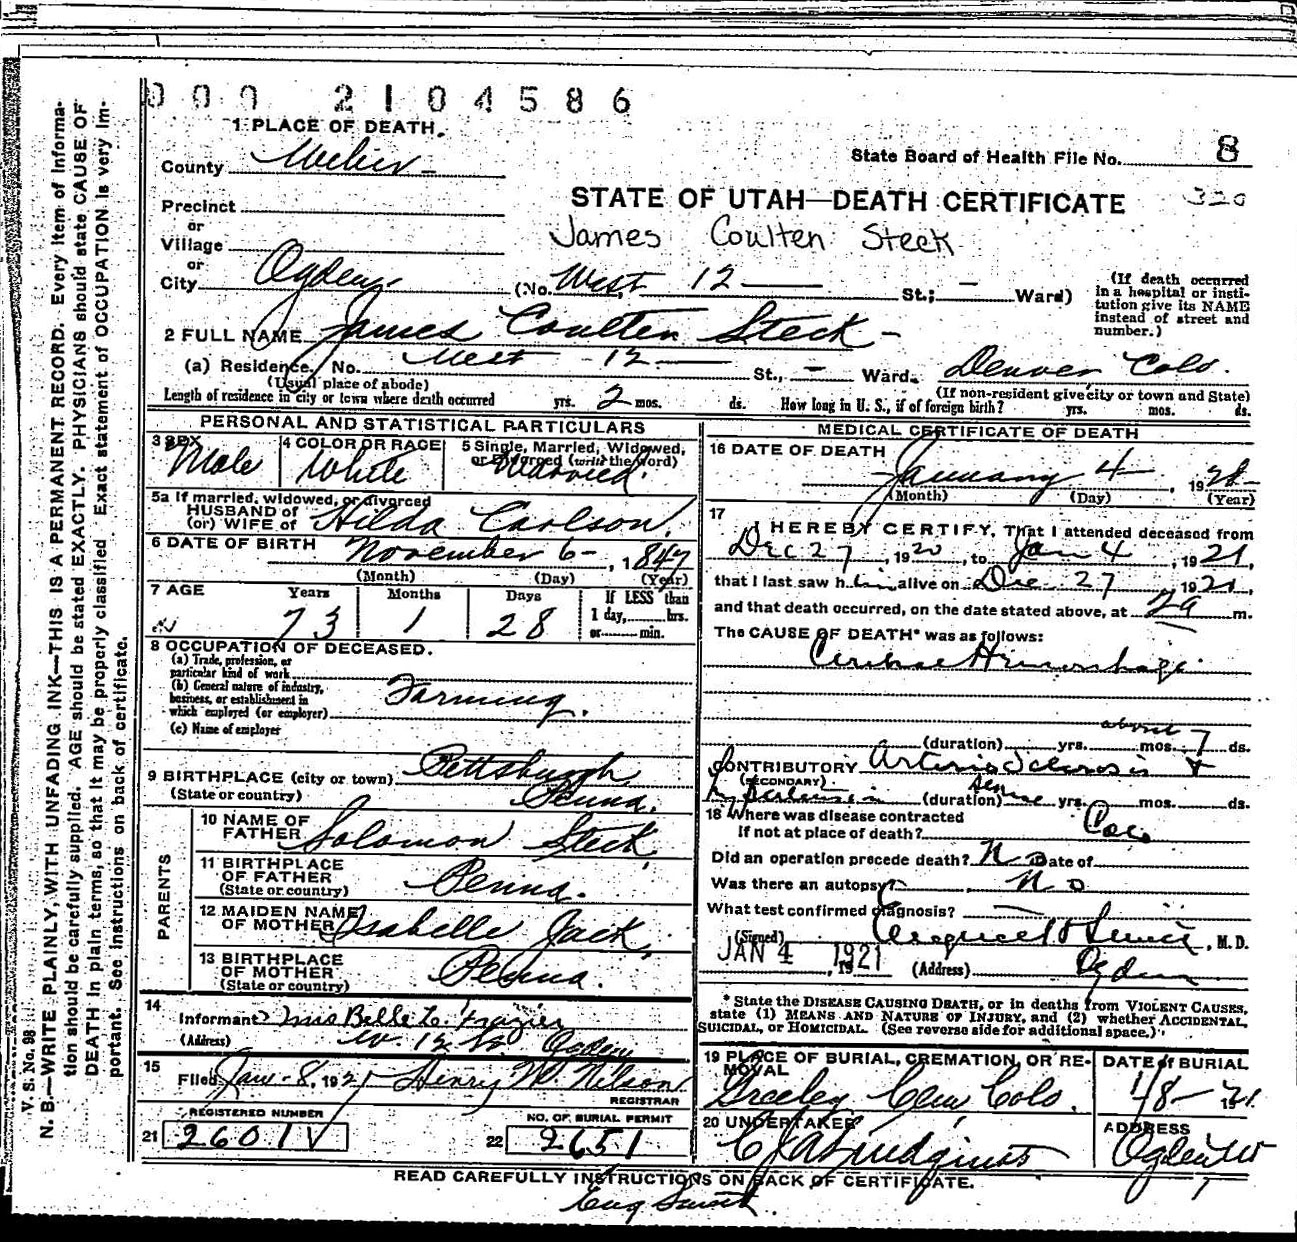 000 2104586
1 PLACE OF DEATH.
County Weber
State Board of Health File No. 8
STATE OF UTAH—DEATH CERTIFICATE 320
Precinct
or
Village
James Coulten Steck
or
City Ogden (No. West 12 St.; — Ward)
(If death occurred in a hospital or institution give its NAME instead of street and number.)
2 FULL NAME James Coulten Steck
(a) Residence, No. West 12 St., — Ward. Denver Colo.
(Usual place of abode) (If non-resident give city or town and State)
Length of residence in city or town where death occurred yrs. 2 mos. ds. How long in U. S., if of foreign birth? yrs. mos. ds.
PERSONAL AND STATISTICAL PARTICULARS
3 SEX Male
4 COLOR OR RACE White
5 Single, Married, Widowed, or Divorced (write the word) Married.
5a If married, widowed, or divorced
HUSBAND of
(or) WIFE of Hilda Carlson
6 DATE OF BIRTH November 6 — , 1847
(Month) (Day) (Year)
7 AGE Years Months Days If LESS than
73 1 28 1 day, hrs.
or min.
8 OCCUPATION OF DECEASED.
(a) Trade, profession, or
particular kind of work
(b) General nature of industry,
business, or establishment in
which employed (or employer) Farming.
(c) Name of employer
9 BIRTHPLACE (city or town) Pittsburgh
(State or country) Penna.
PARENTS
10 NAME OF
FATHER Solomon Steck
11 BIRTHPLACE
OF FATHER
(State or country) Penna.
12 MAIDEN NAME
OF MOTHER Isabelle Jack,
13 BIRTHPLACE
OF MOTHER
(State or country) Penna.
14
Informant Mrs Belle L. Frazier
(Address) W. 12 St. Ogden
15
Filed Jan - 8, 1921 Henry W. Nilson
REGISTRAR
REGISTERED NUMBER
21 2601V
NO. OF BURIAL PERMIT
22 2651
MEDICAL CERTIFICATE OF DEATH
16 DATE OF DEATH
January 4 , 1921
(Month) (Day) (Year)
17
I HEREBY CERTIFY, That I attended deceased from
Dec 27 , 1920, to Jan 4 , 1921,
that I last saw him alive on Dec 27 1920,
and that death occurred, on the date stated above, at 2a m.
The CAUSE OF DEATH* was as follows:
Cerebral Hemorrhage
about
(duration) yrs. mos. 7 ds.
CONTRIBUTORY Arterio Sclerosis &
(SECONDARY)
(duration) yrs. mos. ds.
18 Where was disease contracted
if not at place of death? Colo
Did an operation precede death? No Date of
Was there an autopsy? No
What test confirmed diagnosis? —
(Signed) , M. D.
JAN 4 1921 , 19 (Address) Ogden
* State the DISEASE CAUSING DEATH, or in deaths from VIOLENT CAUSES,
state (1) MEANS AND NATURE OF INJURY, and (2) whether ACCIDENTAL,
SUICIDAL, or HOMICIDAL. (See reverse side for additional space.)
19 PLACE OF BURIAL, CREMATION, OR REMOVAL
Greeley Cem Colo.
DATE of BURIAL
1/8 — 1921
20 UNDERTAKER
C J A Lindquist
ADDRESS
Ogden
READ CAREFULLY INSTRUCTIONS ON BACK OF CERTIFICATE.
V. S. No. 98
N. B.—WRITE PLAINLY, WITH UNFADING INK—THIS IS A PERMANENT RECORD. Every item of informa-
tion should be carefully supplied. AGE should be stated EXACTLY. PHYSICIANS should state CAUSE OF
DEATH in plain terms, so that it may be properly classified. Exact statement of OCCUPATION is very im-
portant. See instructions on back of certificate.